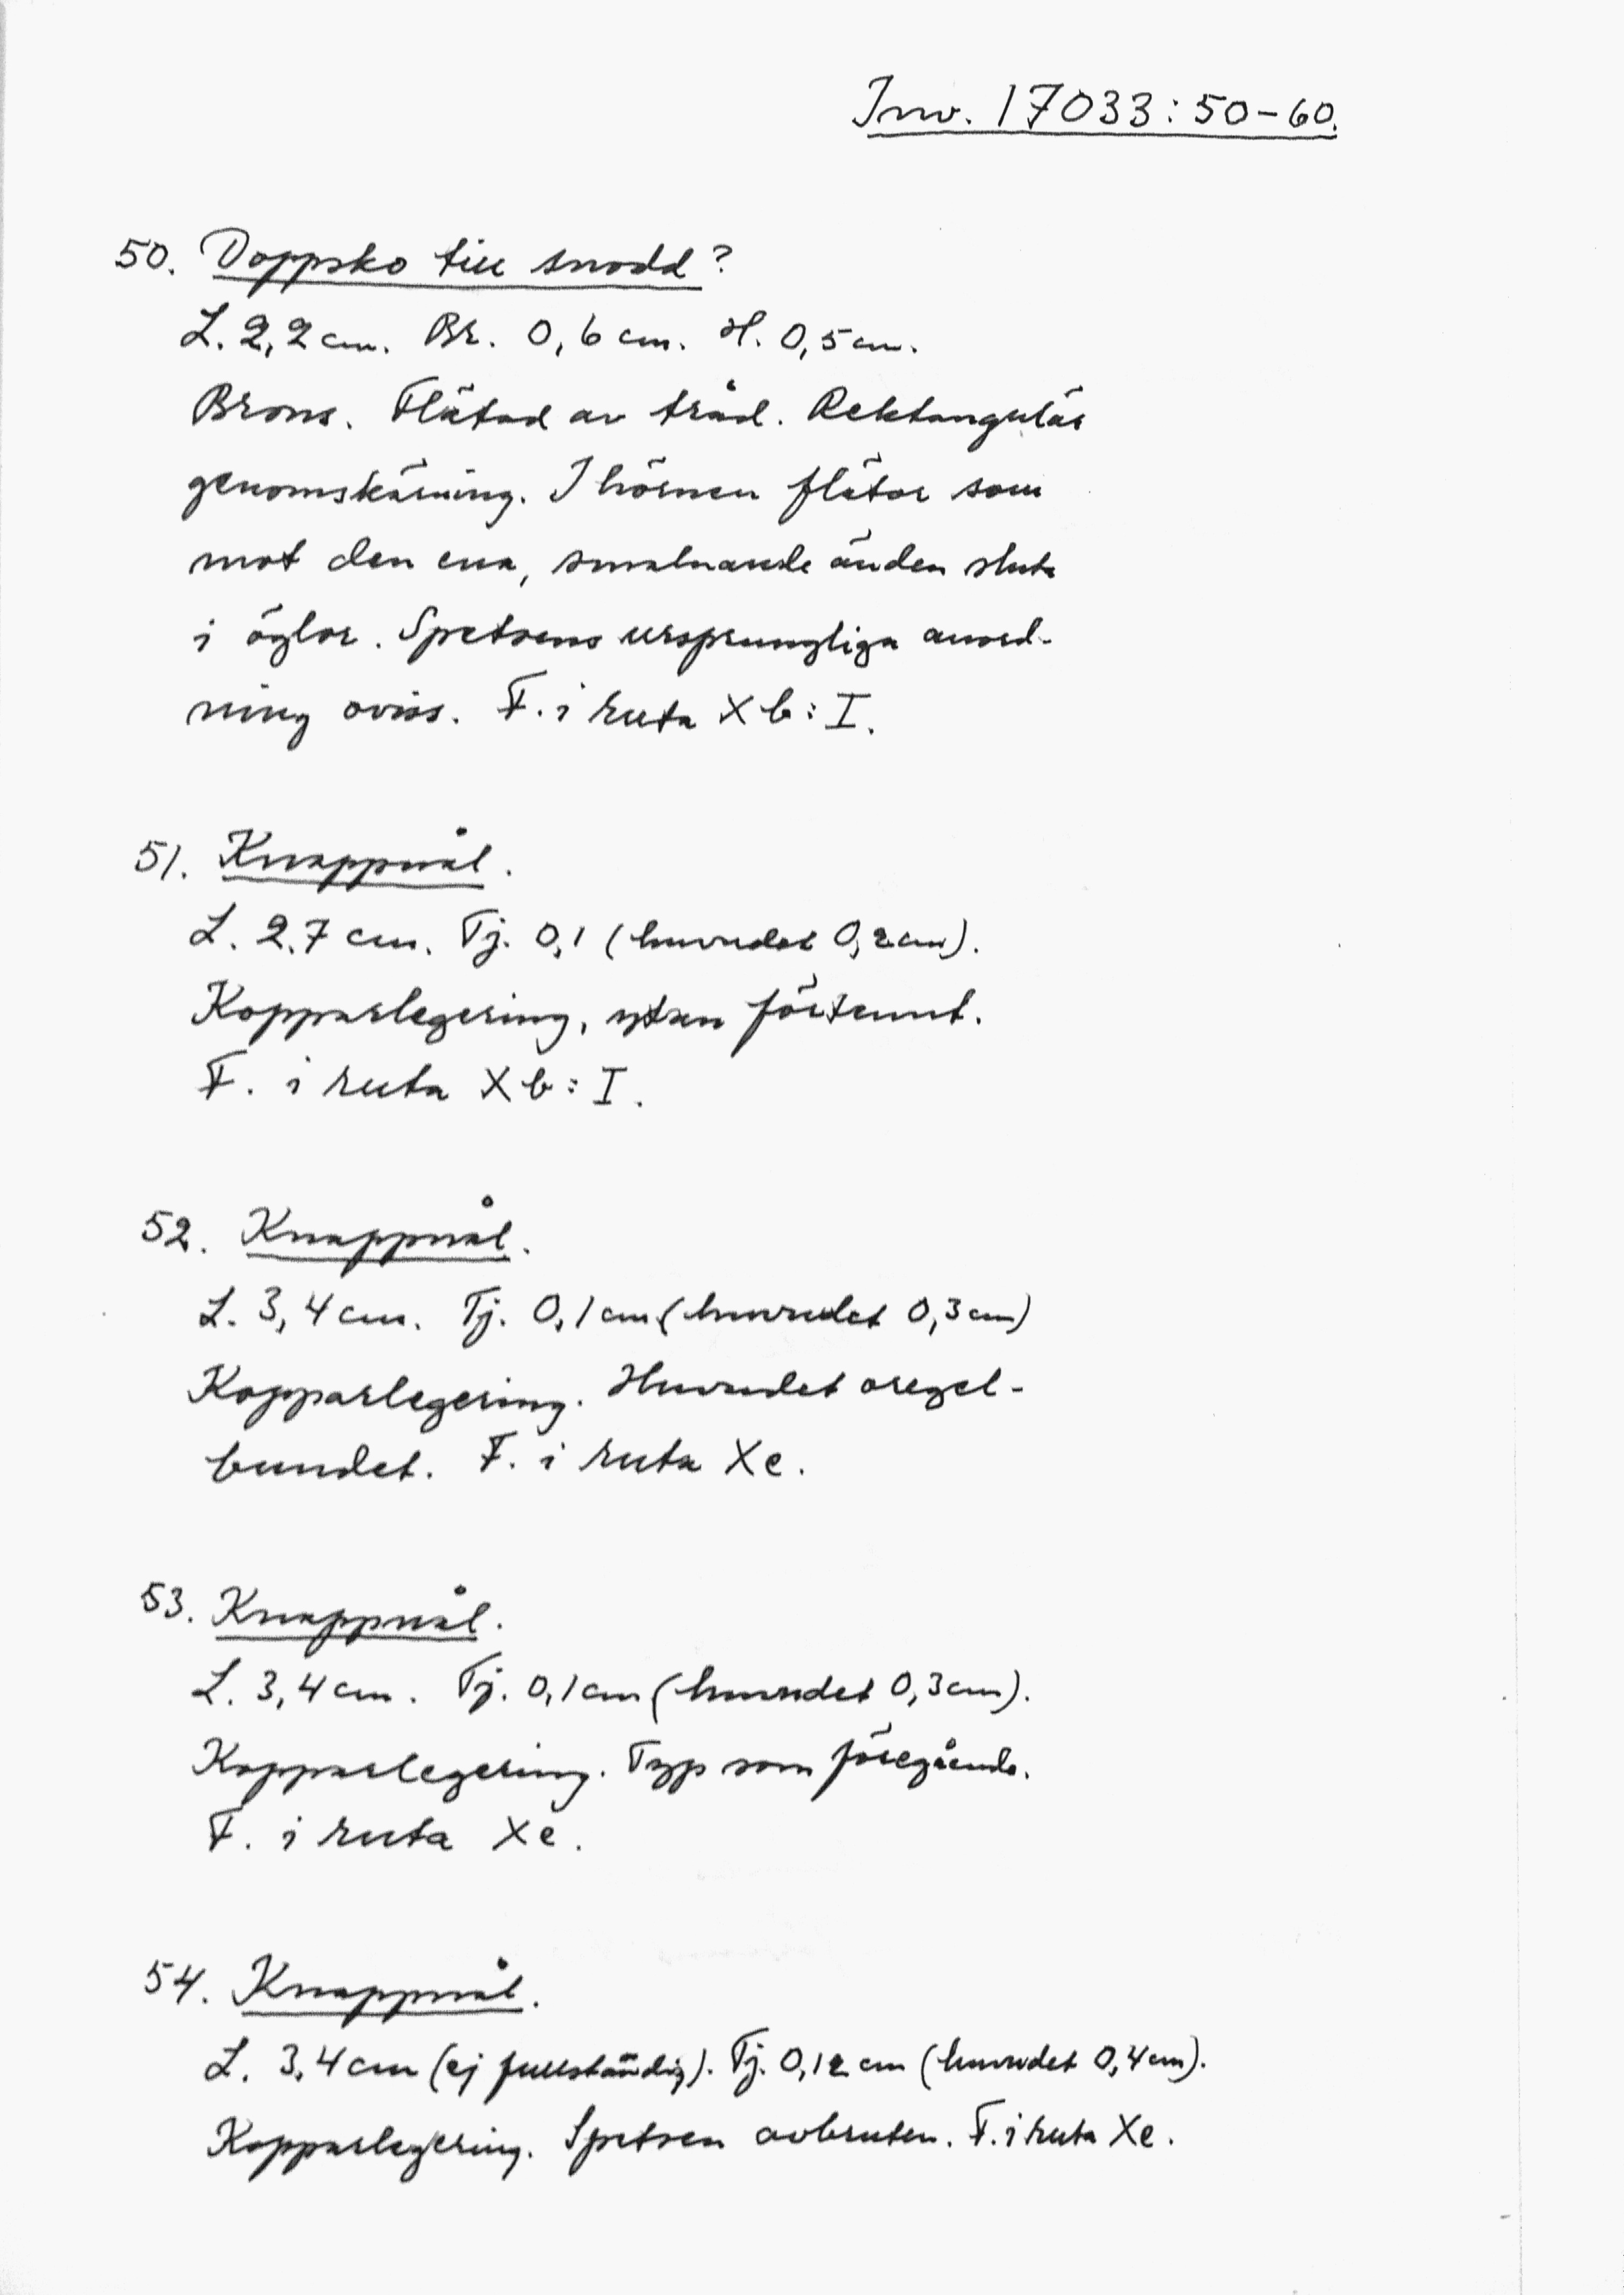 Inv. 17033:50-60.
50. Doppsko till snodd?
L. 2,2 cm. Br. 0,6 cm. H. 0,5 cm.
Brons. Flätad av tråd. Rektangulär
genomskärning. I hörnen flätor som
mot den ena, smalnande änden sluta
i öglor. Spetsens ursprungliga anord-
ning oviss. F. i ruta Xb:I.
51. Knappnål.
L. 2,7 cm. Tj. 0,1 (huvudet 0,2 cm).
Kopparlegering, ytan förtennt.
F. i ruta Xb:I.
52. Knappnål.
L. 3,4 cm. Tj. 0,1 cm (huvudet 0,3 cm)
Kopparlegering. Huvudet oregel-
bundet. F. i ruta Xe.
53. Knappnål.
L. 3,4 cm. Tj. 0,1 cm (huvudet 0,3 cm).
Kopparlegering. Typ som föregående.
F. i ruta Xe.
54. Knappnål.
L. 3,4 cm (ej fullständig). Tj. 0,12 cm (huvudet 0,4 cm).
Kopparlegering. Spetsen avbruten. F. i ruta Xe.